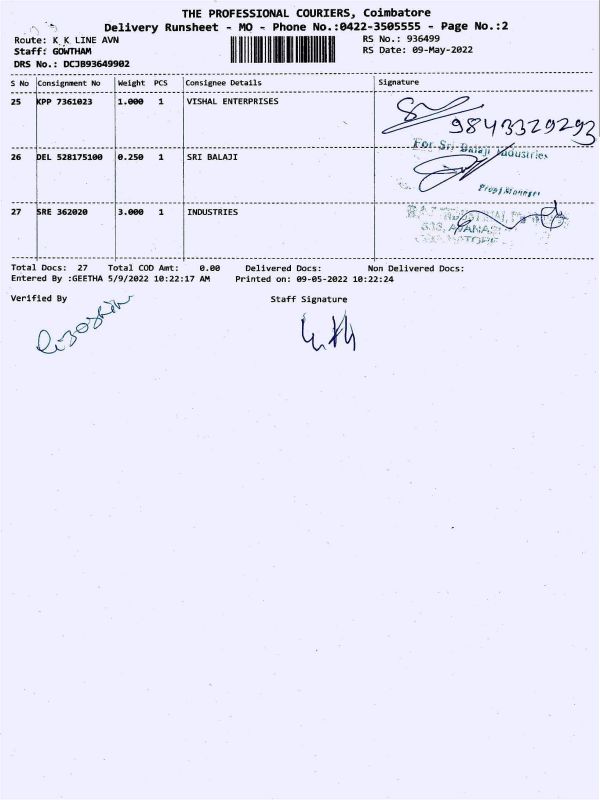 THE PROFESSIONAL COURIERS, Coimbatore
Delivery Runsheet - MO - Phone No.:0422-3505555 - Page No.:2
Route: K K LINE AVN
RS No.: 936499
Staff: GOWTHAM
RS Date: 09-May-2022
DRS No.: DCJB93649902
S No Consignment No Weight PCS Consignee Details Signature
25 KPP 7361023 1.000 1 VISHAL ENTERPRISES
9843329293
For Sri Balaji Industries
26 DEL 528175100 0.250 1 SRI BALAJI
Prop/Manager
27 SRE 362020 3.000 1 INDUSTRIES
Total Docs: 27 Total COD Amt: 0.00 Delivered Docs: Non Delivered Docs:
Entered By :GEETHA 5/9/2022 10:22:17 AM Printed on: 09-05-2022 10:22:24
Verified By Staff Signature